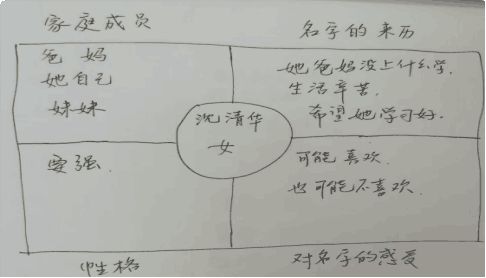 家庭成员
名字的来历
爸 妈
她自己
妹妹
她爸妈没上什么学.
生活辛苦.
希望她学习好.
沈清华
女
要强.
可能喜欢.
也可能不喜欢.
性格
对名字的感受